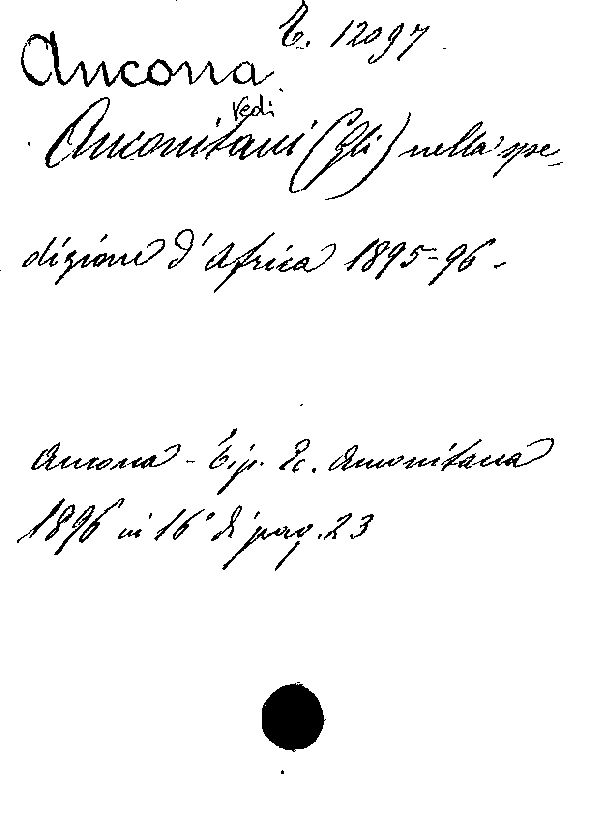 E. 12097
Ancona
vedi
Anconitani (Gli) nella spe-
dizione d'Africa 1895-96 -
Ancona - Tip. Ec. Anconitana
1896 in 16° di pag. 23